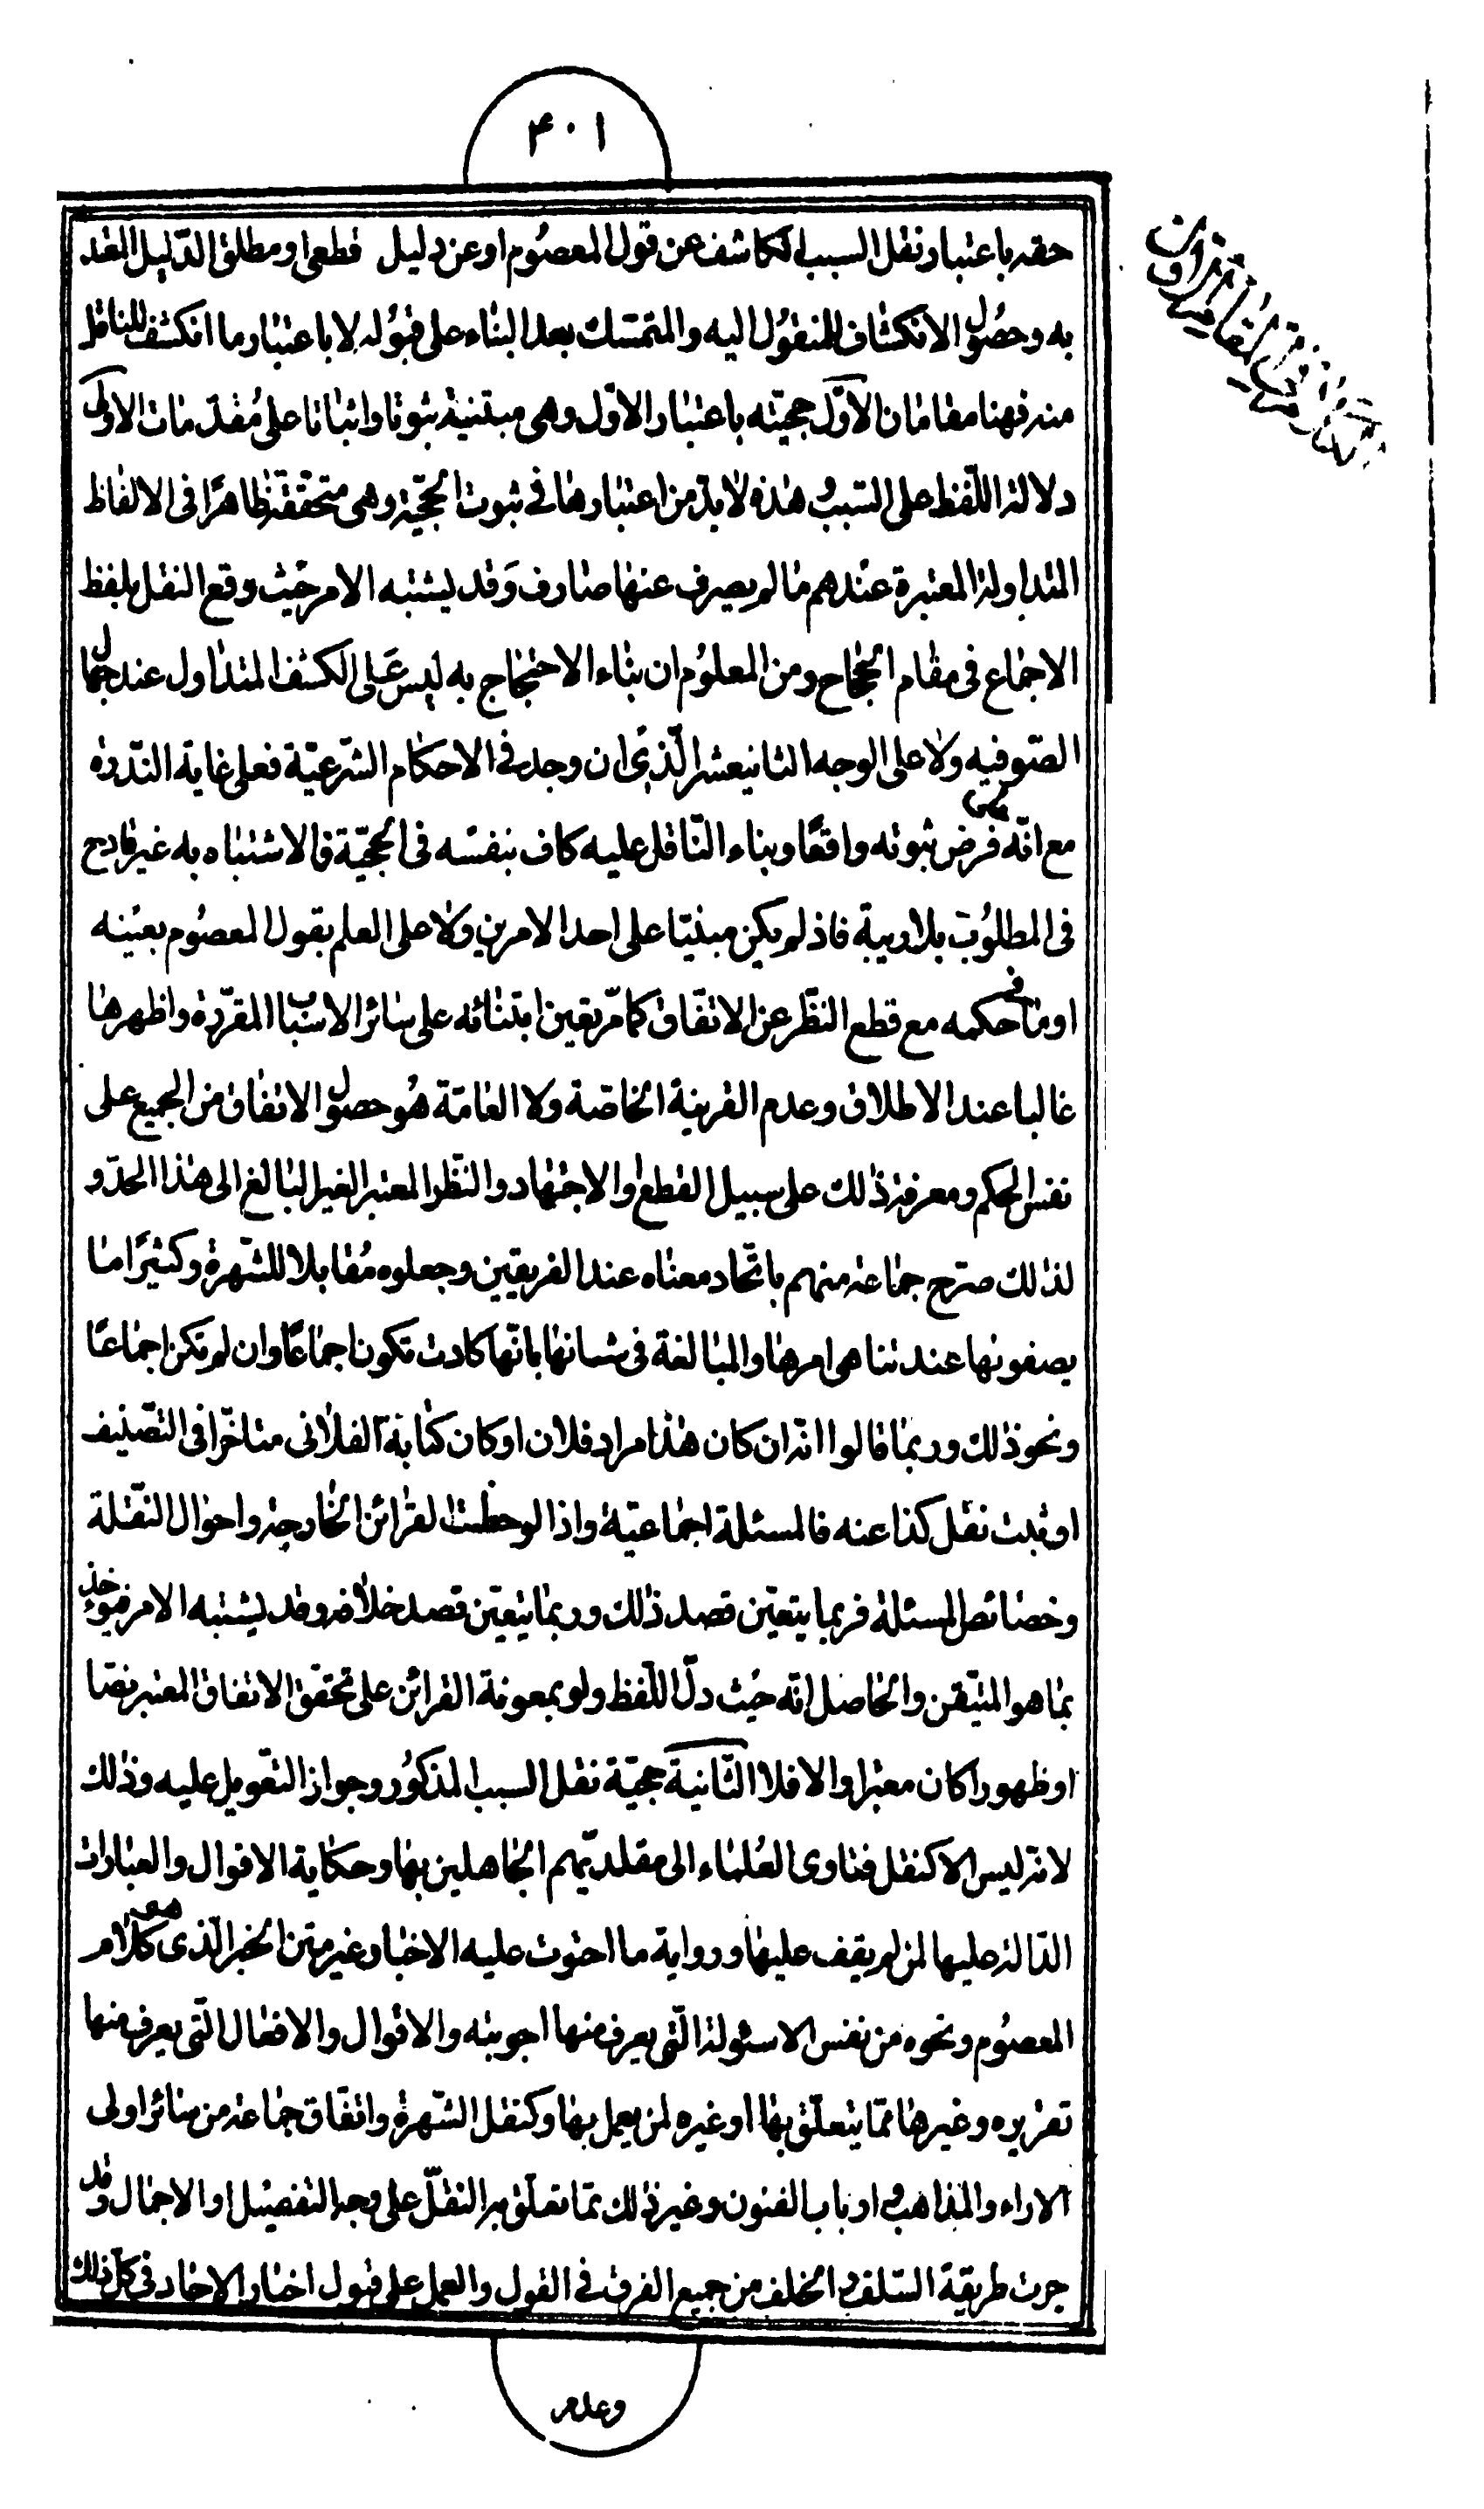 ٤٠١
حقه باعتبار نقل السبب الكاشف عن قول المعصوم او عن دليل قطعى او مطلق الدليل المعتد
به وحصول الانكشاف للمنقول اليه والمتمسك بعد البناء على قبوله لا باعتبار ما انكشف للناقل
منه فهنا مقامان الاول حجيته باعتبار الاول وهى مبتنية ثبوتا واثباتا على مقدمات الاولى
دلالة اللفظ على السبب وهذه لابد من اعتبارها فى ثبوت الحجية وهى متحققة ظاهرا فى الالفاظ
المتداولة المعتبرة عندهم ما لم يصرف عنها صارف وقد يشتبه الامر حيث وقع النقل بلفظ
الاجماع فى مقام الحجاج ومن المعلوم ان بناء الاحتجاج به ليس على الكشف المتداول عند جهال
الصوفية ولا على الوجه الثانيعشر الذى ان وجد فى الاحكام الشرعية فعلى غاية الندرة
مع انه فرض ثبوته واقعا وبناء الناقل عليه كاف بنفسه فى الحجية فالاشتباه به غير قادح
فى المطلوب بلا ريبة فاذ لم يكن مبنيا على احد الامرين ولا على العلم بقول المعصوم بعينه
او ما فى حكمه مع قطع النظر عن الاتفاق كما مر تعين ابتنائه على سائر الاسباب المقررة واظهرها
غالبا عند الاطلاق وعدم القرينة الخاصة ولا العامة هو حصول الاتفاق من الجميع على
نفس الحكم ومعرفة ذلك على سبيل القطع او الاجتهاد والنظر المعتبر الغير البالغ الى هذا الحد و
لذلك صرح جماعة منهم باتحاد معناه عند الفريقين وجعلوه مقابلا للشهرة وكثيرا ما
يصفونها عند تناهى امرها والمبالغة فى شانها بانها كادت تكون اجماعا وان لم تكن اجماعا
ونحو ذلك وربما قالوا انه ان كان هذا مراد فلان او كان كتابه الفلانى متاخرا فى التصنيف
او ثبت نقل كذا عنه فالمسئلة اجماعية واذا لوحظت القرائن الخارجة واحوال النقلة
وخصائص المسئلة فربما يتعين قصد ذلك وربما يتعين قصد خلافه وقد يشتبه الامر فيؤخذ
بما هو المتيقن والحاصل انه حيث دل اللفظ ولو بمعونة القرائن على تحقق الاتفاق المعتبر نصا
او ظهورا كان معتبرا والا فلا الثانية حجية نقل السبب المذكور وجواز التعويل عليه وذلك
لانه ليس الا كنقل فتاوى العلماء الى مقلديهم الجاهلين بها وحكاية الاقوال والعبارات
الدالة عليها لمن لم يقف عليها ورواية ما احتوت عليه الاخبار غير متن الخبر الذى هو كلام
المعصوم ونحوه من نفس الاسئولة التى يعرف منها اجوبته والاقوال والافعال التى يعرف منها
تقريره وغيرها مما يتعلق بها او غيره لمن يعمل بها وكنقل الشهرة واتفاق جماعة من سائر اولى
الاراء والمذاهب وارباب الفنون وغير ذلك مما تعلق به النقل على وجه التفصيل او الاجمال وقد
جرت طريقة السلف والخلف من جميع الفرق فى القول والعمل على قبول اخبار الاحاد فى كل ذلك
وعلم